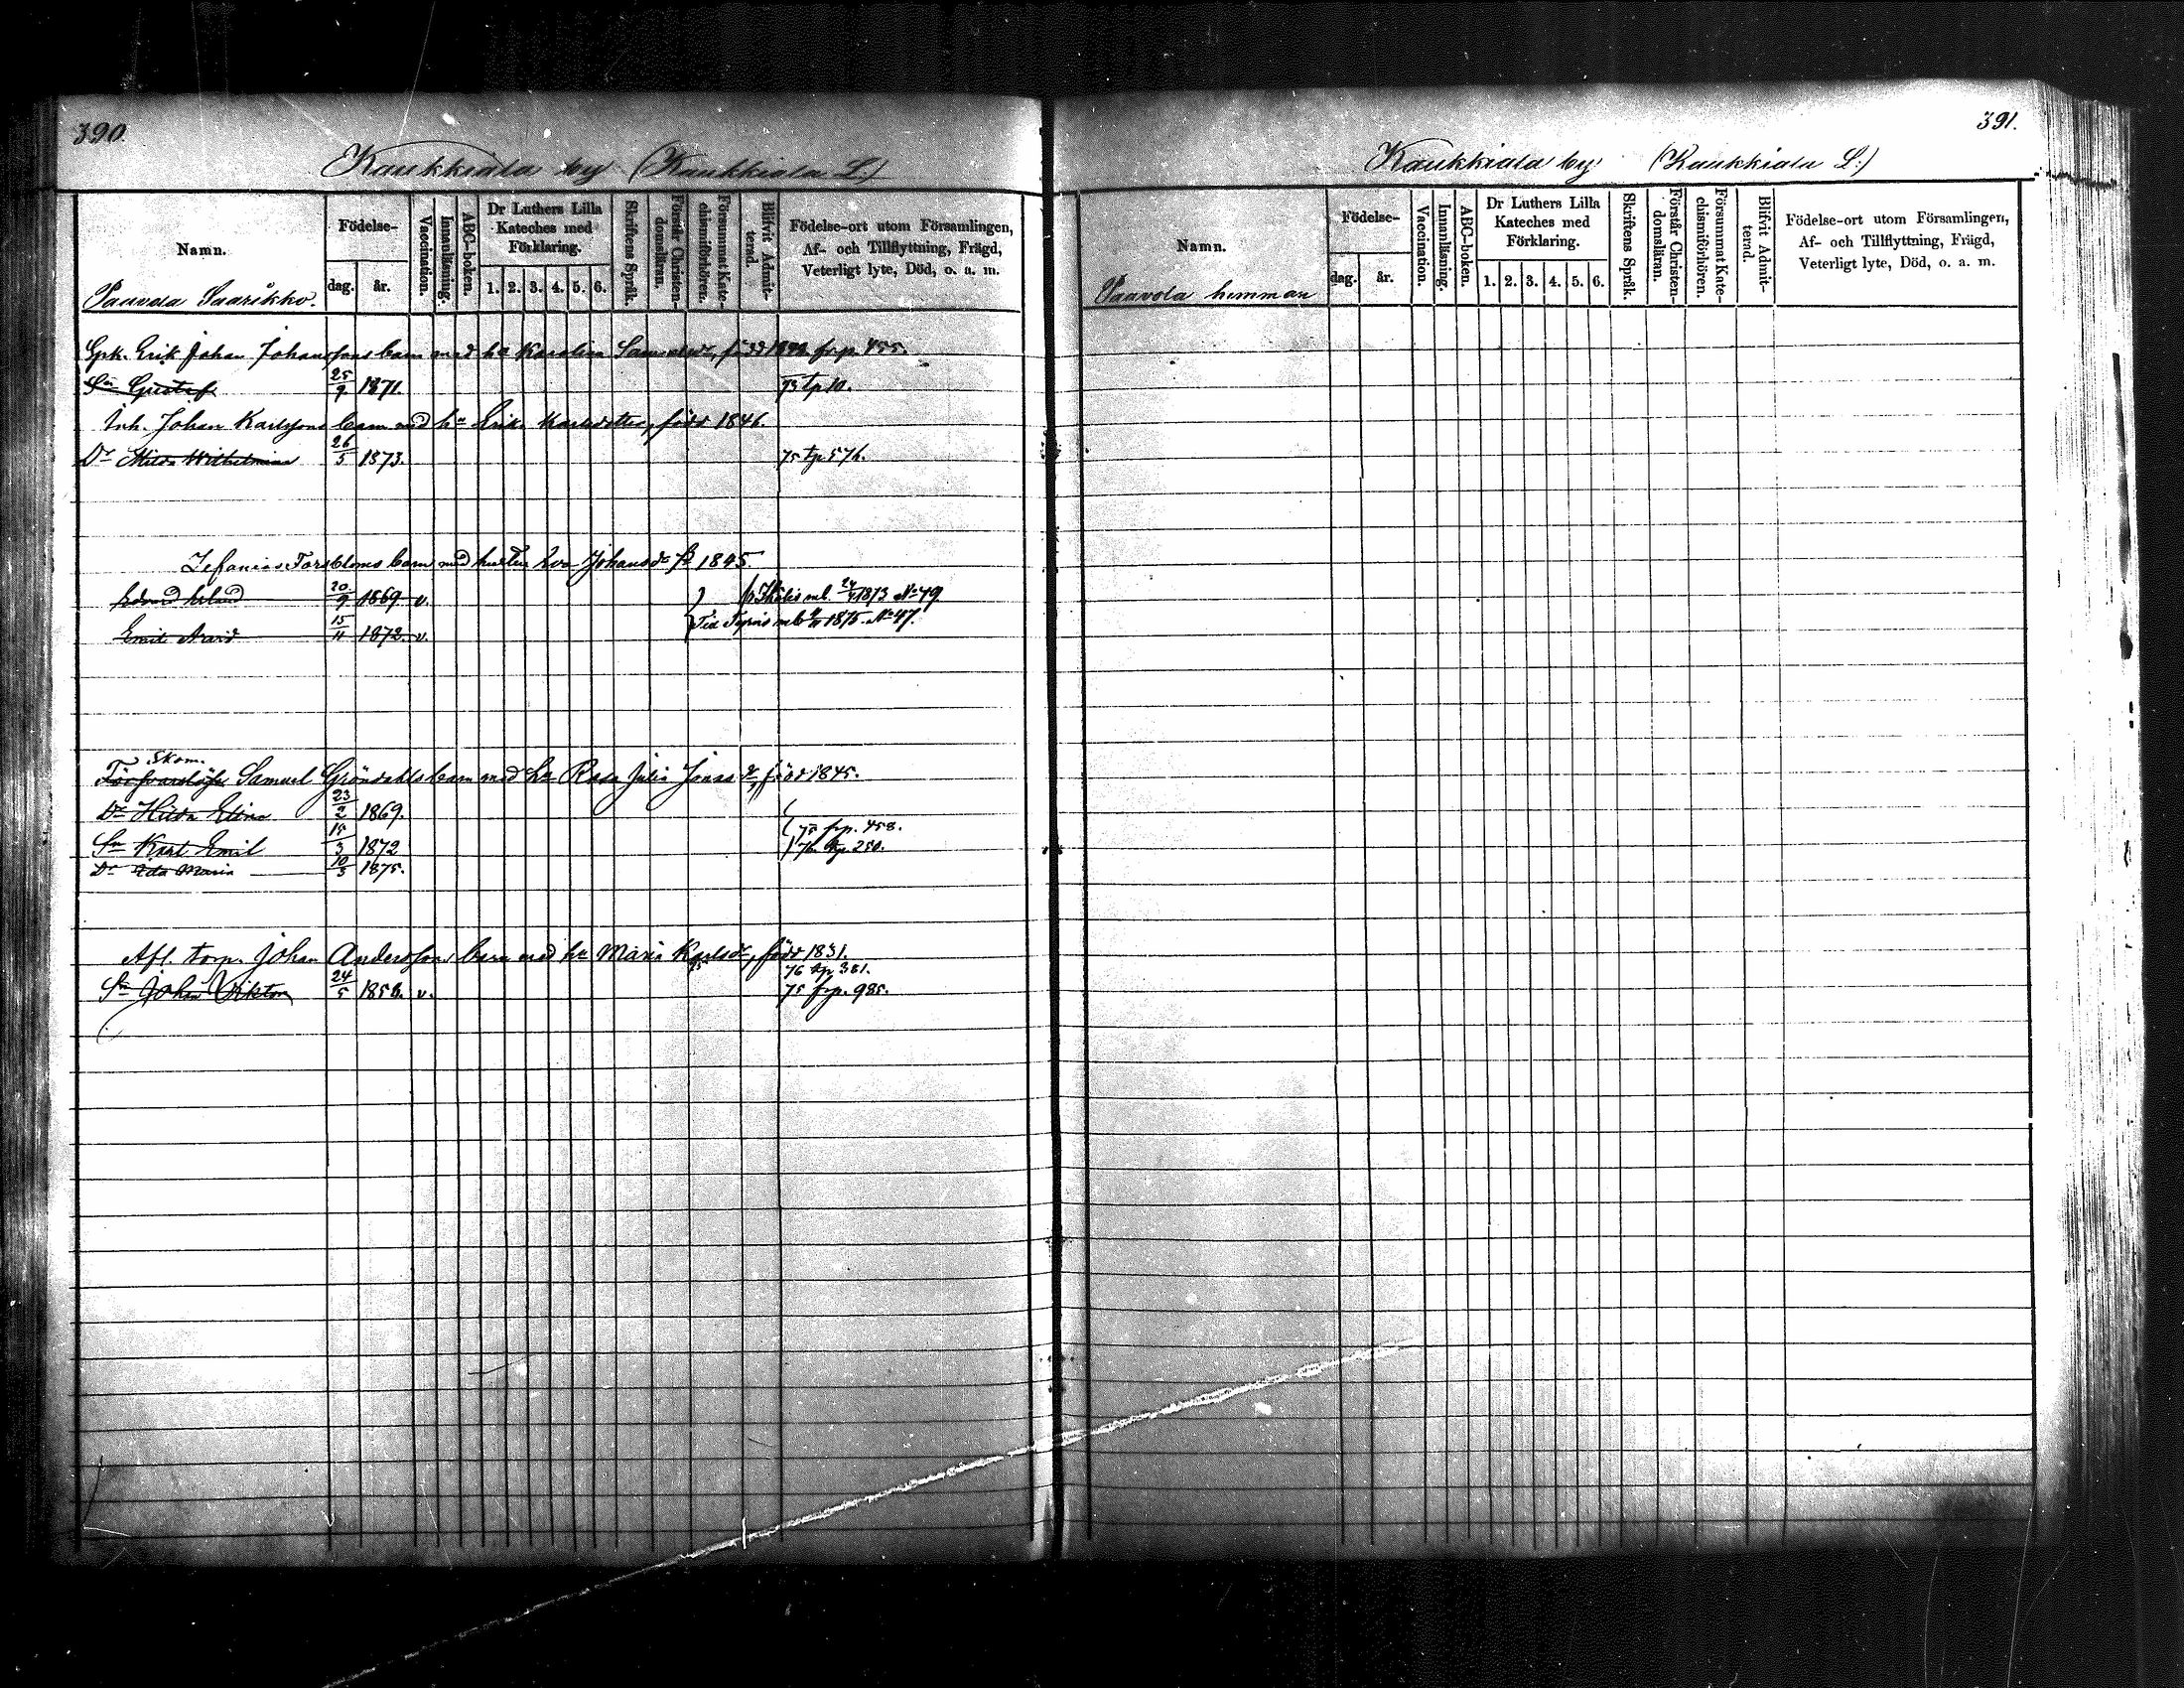 390.
Kaukkiala by (Kaukkiala L:)
Namn.
Födelse-
dag.
år.
Vaccination.
Innanläsning.
ABC-boken.
Dr Luthers Lilla Kateches med Förklaring.
1. 2. 3. 4. 5. 6.
Skriftens Språk.
Förstår Christendomsläran.
Försummat Katechismiförhören.
Blifvit Admitterad.
Födelse-ort utom Församlingen, Af- och Tillflyttning, Frägd, Veterligt lyte, Död, o. a. m.
Paavola Saarikko.
Erik Johan Johanssons barn med hu Karolina född frp. 455.
Sn Gustaf 25/9 1871. 73 tp 10.
Inh. Johan Karlssons barn med hu Karlsdotter, född 1846.
Dr Hilda Wilhelmina 26/5 1873. 75 tp 576.
Zefanias Forsbloms barn med hustru Eva Johansdr 1845
Edvard 20/9 1869 v. 1873 No 79.
Emil Arvid 15/11 1872. v. 1875 No 47.
Skom.
Samuel Gröndahls barn med hu Rosa Julia Jonasdr, född 1845.
Dr Hilda Elina 23/2 1869.
75 frp. 458.
Sn Karl Emil 15/3 1872 76. tp. 250.
Dr Ida Maria 10/3 1875.
Afl. torp. Johan Anderssons barn med hu Maria Karlsdr, född 1831.
76 tp 381.
Sn Johan Viktor 24/5 1856. v. 75 frp. 985.
391.
Kaukkiala by (Kaukkiala L:)
Namn.
Födelse-
dag.
år.
Vaccination.
Innanläsning.
ABC-boken.
Dr Luthers Lilla Kateches med Förklaring.
1. 2. 3. 4. 5. 6.
Skriftens Språk.
Förstår Christendomsläran.
Försummat Katechismiförhören.
Blifvit Admitterad.
Födelse-ort utom Församlingen, Af- och Tillflyttning, Frägd, Veterligt lyte, Död, o. a. m.
Paavola hemman